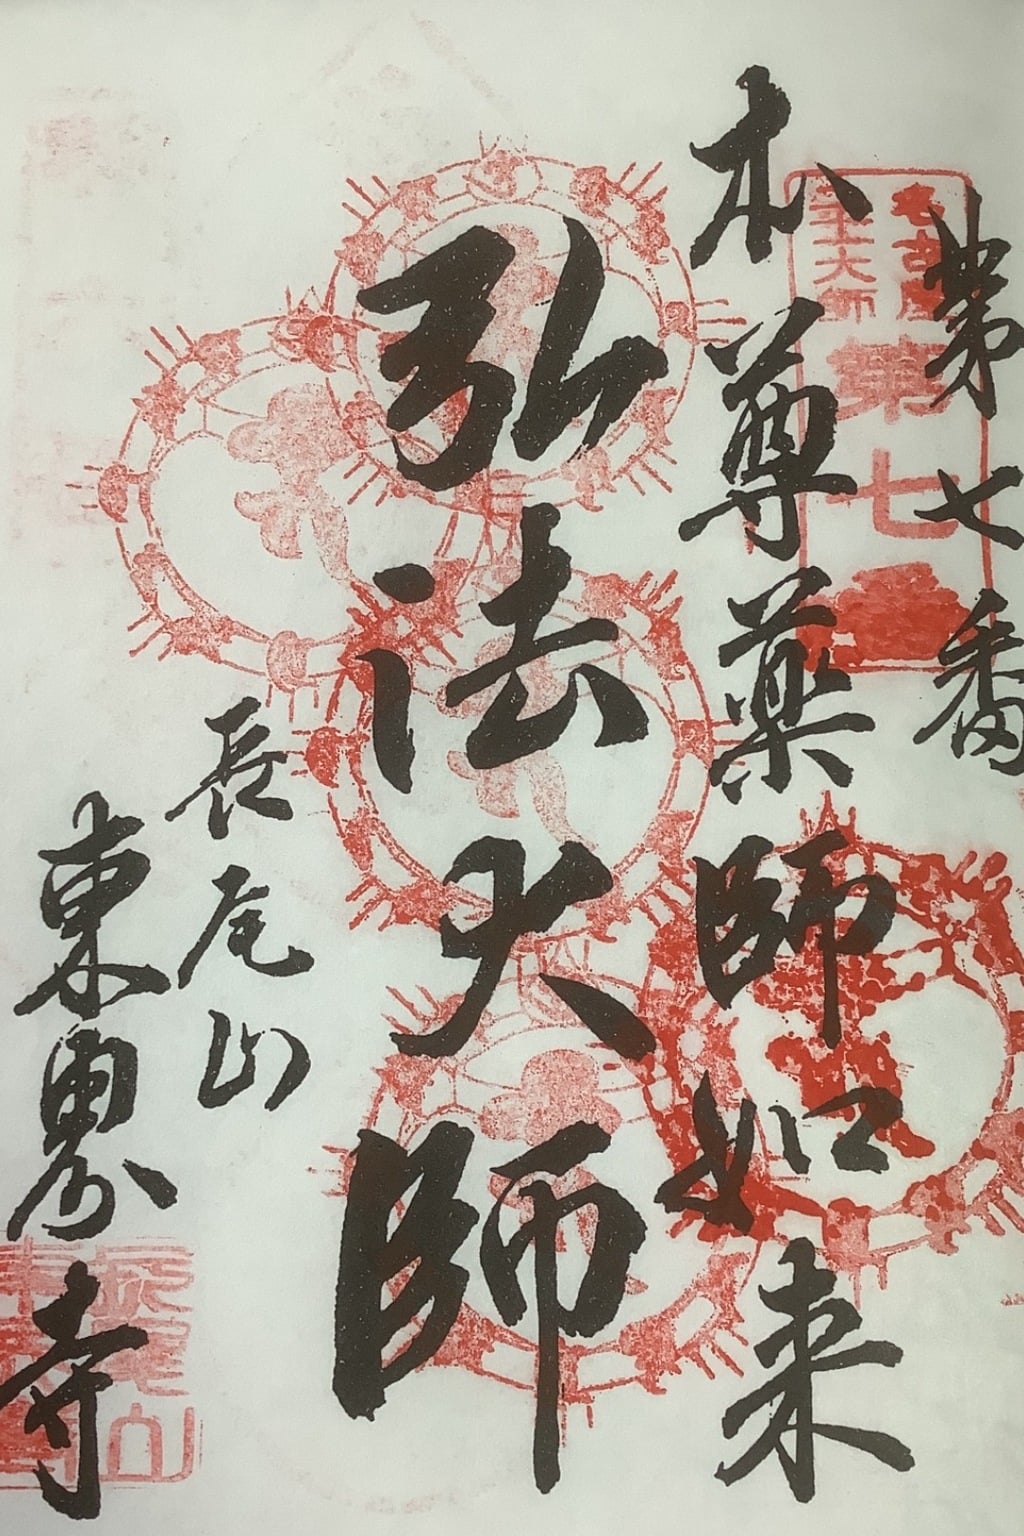 第七番
本尊薬師如来
弘法大師
長尾山
東界寺
名古屋
第七番
長尾山